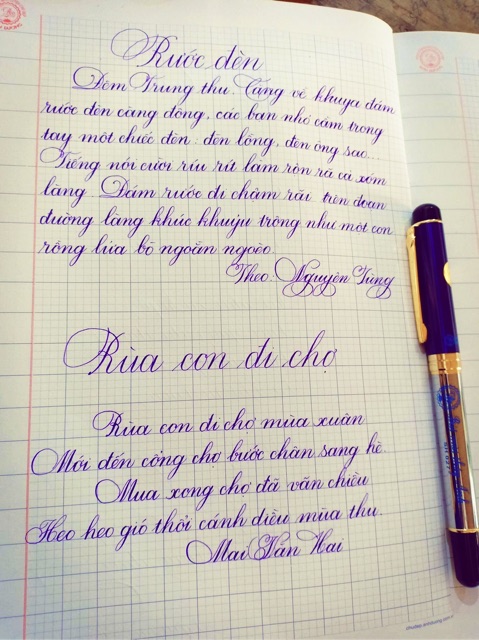 Rước đèn
Đêm Trung thu. Càng về khuya đám
rước đèn càng đông, các bạn nhỏ cầm trong
tay một chiếc đèn: đèn lồng, đèn ông sao...
Tiếng nói cười ríu rít làm rộn rã cả xóm
làng. Đám rước đi chậm rãi trên đoạn
đường làng khúc khuỷu trông như một con
rồng lửa bò ngoằn ngoèo.
Theo Nguyễn Tùng
Rùa con đi chợ
Rùa con đi chợ mùa xuân
Mới đến cổng chợ bước chân sang hè.
Mua xong chợ đã vãn chiều
Heo heo gió thổi cánh diều mùa thu.
Mai Văn Hai